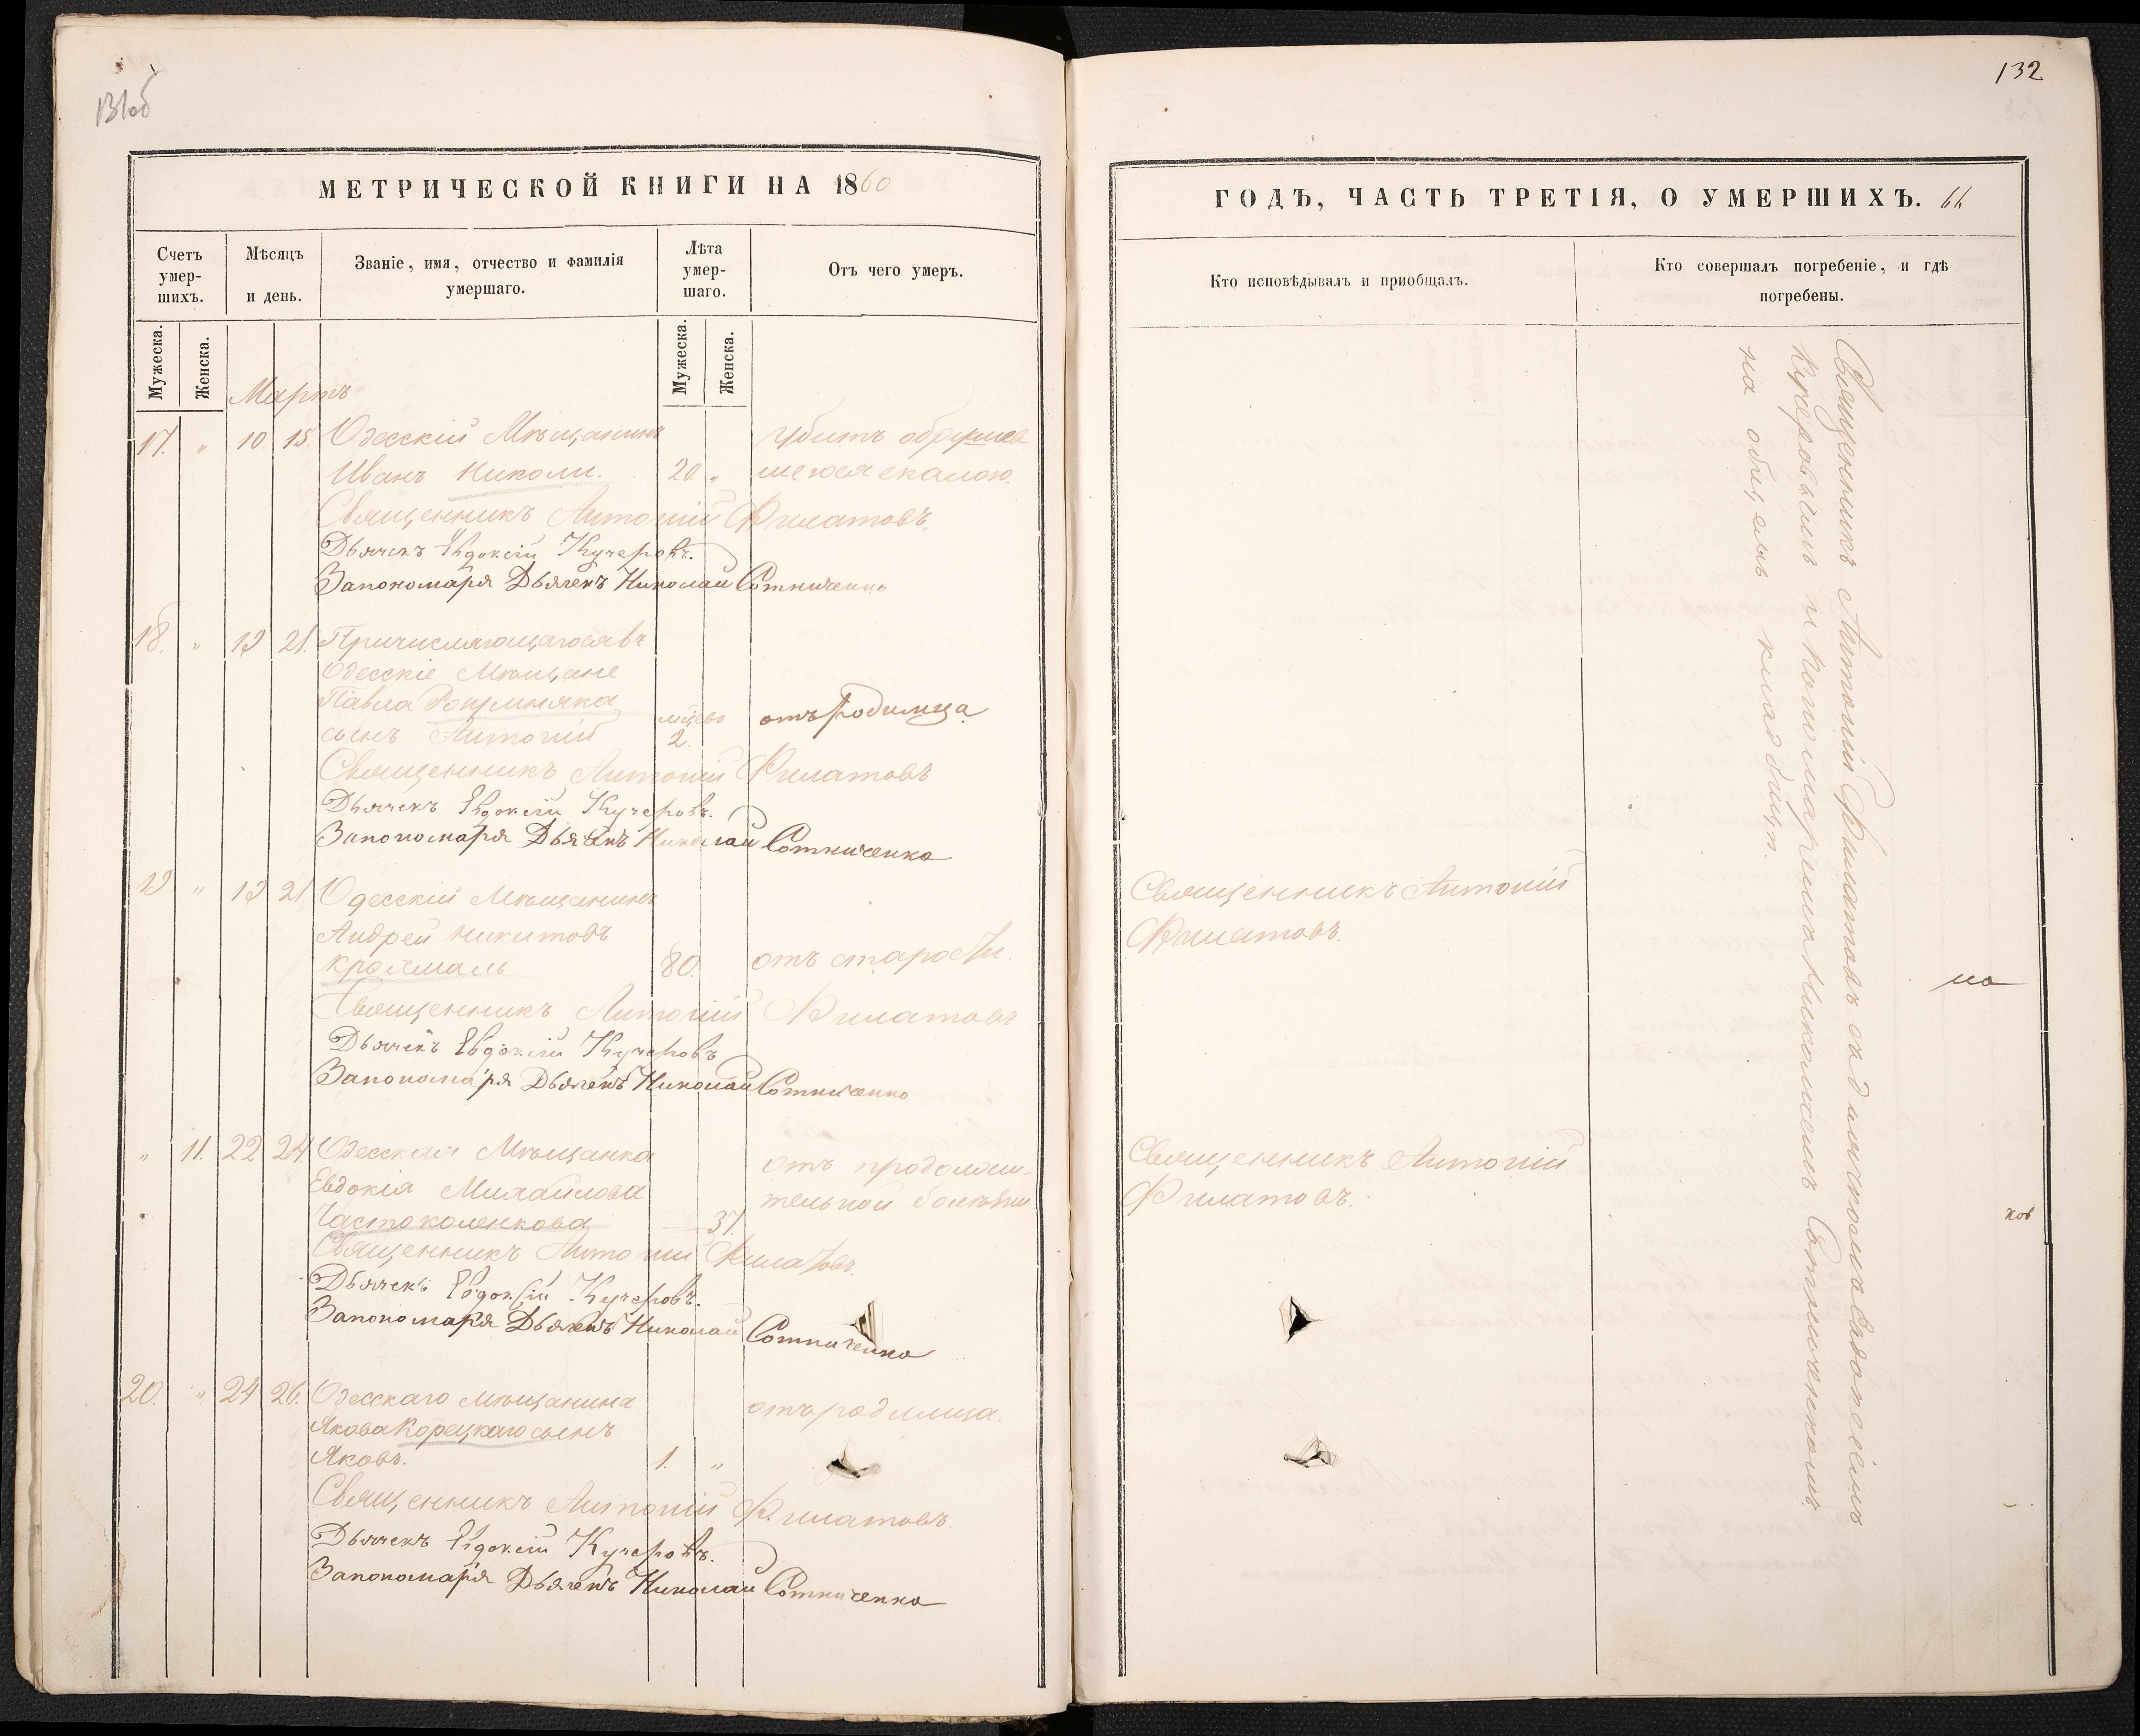 131об
132
МЕТРИЧЕСКОЙ КНИГИ НА 1860
Счетъ умер-шихъ.
Мѣсяцъ и день.
Званіе, имя, отчество и фамилія умершаго.
Лѣта умер-шаго.
Отъ чего умеръ.
Мужеска.
Женска.
Мужеска.
Женска.
Мартъ
17. " 10. 15. Одесскій Мѣщанинъ Убитъ обрушив
Иванъ Николи. 20 " шеюся скалою.
Священникъ Антоній Филатовъ.
Дьячекъ Евдоксій Кучеровъ.
За пономаря Дьячекъ Николай Сотниченко
18. " 19 21. Причисляющагося въ
Одесскіе Мѣщане
Павла
мцевъ отъ родимца
сынъ Антоній 2.
Священникъ Антоній Филатовъ
Дьячекъ Евдоксій Кучеровъ.
За пономаря Дьячекъ Николай Сотниченко
19 " 19 21. Одесскій Мѣщанинъ
Андрей Никитовъ
80. отъ старости.
Священникъ Антоній Филатовъ
Дьячекъ Евдоксій Кучеровъ
За пономаря Дьячекъ Николай Сотниченко
" 11. 22 24. Одесская Мѣщанка отъ продолжи-
Евдокія Михайлова тельной болѣзни
Частоколенкова 37.
Священникъ Антоній Филатовъ.
Дьячекъ Евдоксій Кучеровъ.
За пономаря Дьячекъ Николай Сотниченко
20. " 24 26. Одесскаго мѣщанина отъ родимца.
Якова Корецкаго сынъ
Яковъ. 1. "
Священникъ Антоній Филатовъ.
Дьячекъ Евдоксій Кучеровъ.
За пономаря Дьячекъ Николай Сотниченко
ГОДЪ, ЧАСТЬ ТРЕТІЯ, О УМЕРШИХЪ. 66
Кто исповѣдывалъ и пріобщалъ.
Кто совершалъ погребеніе, и гдѣ погребены.
Священникъ Антоній
Филатовъ.
Священникъ Антоній
Филатовъ.
Священникъ Антоній Филатовъ съ дьячкомъ Евдоксіемъ
Кучеровымъ и пономаремъ Николаемъ Сотниченкомъ
на общемъ кладбищѣ.
но
ков